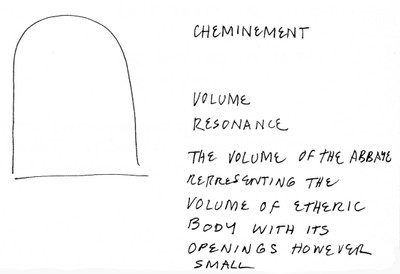 CHEMINEMENT
VOLUME
RESONANCE
THE VOLUME OF THE ABBAYE
REPRESENTING THE
VOLUME OF ETHERIC
BODY WITH ITS
OPENINGS HOWEVER
SMALL